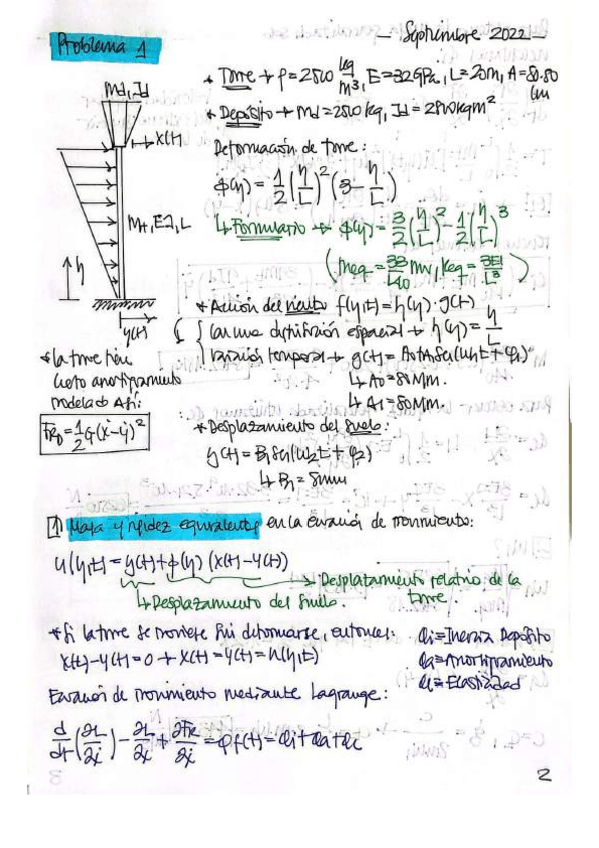 Problema 1
— Septiembre 2022 —
* Torre → ρ = 2500 kg/m³, E = 32GPa, L = 20m, A = 80·80 cm
* Depósito → Md = 2500 kg, Id = 2500 kgm²
Md, Id
→ x(t)
Deformación de torre:
ϕ(η) = 1/2 (η/L)² (3 - η/L)
↳ Formulario → ϕ(η) = 3/2 (η/L)² - 1/2 (η/L)³
Mt, EI, L
(meq = 33/140 mv, keq = 3EI/L³)
η
y(t)
* Acción del viento f(η,t) = h(η) · g(t)
Con una distribución espacial → h(η) = η/L
Variación temporal → g(t) = A0 + A1 Sen(ω1t + φ1)
↳ A0 = 80 N/m.
↳ A1 = 80 N/m.
* La torre tiene
cierto amortiguamiento
modelado así:
FR = 1/2 G(ẋ-ẏ)²
* Desplazamiento del suelo:
y(t) = B1 Sen(ω2t + φ2)
↳ B1 = 8mm
1] Masa y rigidez equivalente en la ecuación de movimiento:
u(η,t) = y(t) + ϕ(η) (x(t) - y(t))
→ Desplazamiento relativo de la torre
↳ Desplazamiento del suelo.
* Si la torre se moviese sin deformarse, entonces:
x(t) - y(t) = 0 → x(t) = y(t) = u(η,t)
Qi = Inercia Depósito
Qa = Amortiguamiento
Qe = Elasticidad
Ecuación de movimiento mediante Lagrange:
d/dt (∂L/∂ẋ) - ∂L/∂x + ∂FR/∂ẋ = Qf(t) = Qi + Qa + Qe
2